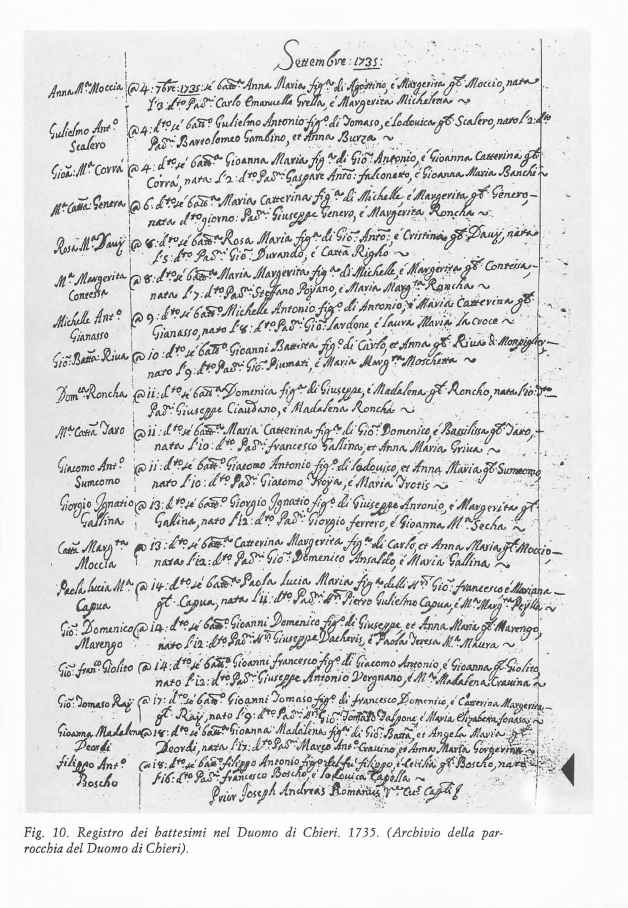 Settembre: 1735:
Anna Mª Moccia @ 4: 7bre: 1735: si è battª Anna Maria figª di Agostino, è Margerita gli Moccio, nata
l'3: dto Padni Carlo Emanuelle Grella, è Margerita Micheletta ~
Gulielmo Antº @ 4: dto si è battº Gulielmo Antonio figº di Tomaso, è Lodovica gli Scalero, nato l'2: dto
Scalero Padni Bartolomeo Gambino, et Anna Burza ~
Gioa: Mª Corrá @ 4: dto si è battª Gioanna Maria figª di Gioº Antonio, è Gioanna Catterina gli
Corrá, nata l'2: dto Padni Gaspare Antº: falconetto, è Gioanna Maria Banchi ~
Mª Cattª Genera @ 6: dto si è battª Maria Catterina figª di Michelle, è Margerita gli Genero,
nata dto giorno: Padni Giuseppe Genero, è Margerita Roncha ~
Rosa Mª Dauÿ @ 8: dto si è battª Rosa Maria figª di Gioº Antº: è Cristina gli Dauÿ, nata
l'5: dto Padni Gioº Durando, è Cattª Righo ~
Mª Margerita @ 8: dto si è battª Maria Margerita figª di Michelle, è Margerita gli Contessa
Contessa nata l'7: dto Padni Steffano Pojano, è Maria Margta Roncha ~
Michelle Antº @ 9: dto si è battº Michelle Antonio figº di Antonio, è Maria Catterina gli
Gianasso Gianasso, nato l'8: dto Padni Gioº Lardone, è Laura Maria la croce ~
Gioº Batta: Riua @ 10: dto si è battº Gioanni Battista figº di Carlo, et Anna gli Riua di
nato l'9: dto Padni Gioº Piumati, è Maria Margta Moschetta ~
Domca Roncha @ 11: dto si è battª Domenica figª di Giuseppe, è Madalena gli Roncho, nata l'10: dto
Padni Giuseppe Ciaudano, è Madalena Roncha ~
Mª Cattª Taro @ 11: dto si è battª Maria Catterina figª di Gioº Domenico è Basilissa gli Taro,
nata l'10: dto Padni francesco Gallina, et Anna Maria Griua ~
Giacomo Antº @ 11: dto si è battº Giacomo Antonio figº di Lodouico, et Anna Maria gli Sumcomo,
Sumcomo nato l'10: dto Padni Giacomo Troÿa, è Maria Trotis ~
Giorgio Ignatio @ 13: dto si è battº Giorgio Ignatio figº di Giuseppe Antonio, è Margerita gli
Gallina Gallina, nato l'12: dto Padni Giorgio ferrero, è Gioanna Mª Secha ~
Cattª Margta @ 13: dto si è battª Catterina Margerita figª di Carlo, et Anna Maria gli Moccio,
Moccia nata l'12: dto Padni Gioº Domenico Ansaldo, è Maria Gallina ~
Paola Lucia Mª @ 14: dto si è battª Paola Lucia Maria figª delli Gioº francesco è Mariana
Capua gli Capua, nata l'4: dto Padni Pietro Gulielmo Capua, è Mª Margta
Gioº Domenico @ 14: dto si è battº Gioanni Domenico figº di Giuseppe, et Anna Maria gli Marengo,
Marengo nato l'12: dto Padni Giuseppe Dacheris, è Paola Teresa Mª Maura ~
Gioº franº Giolito @ 14: dto si è battº Gioanni francesco figº di Giacomo Antonio, è Gioanna gli Giolito,
nato l'12: dto Padni Giuseppe Antonio Vergnano, è Mª Madalena Crauina ~
Gioº Tomaso Raÿ @ 17: dto si è battº Gioanni Tomaso figº di francesco Domenico, è Catterina Margerita
gli Raÿ, nato l'9: dto Padni Gioº Tomaso Talpone, è Maria Elizabetta foassa ~
Gioanna Madalena @ 18: dto si è battª Gioanna Madalena figª di Gioº Battª, et Angela Maria gli
Deordi Deordi, nata l'17: dto Padni Marco Antº Crauino et Anna Maria Gorgerina ~
Filippo Antº @ 18: dto si è battº filippo Antonio figº del fu filippo, è Letitia gli Boscho, nato
Boscho l'16: dto Padni francesco Boscho, è Lodouica Capella ~
Prior Joseph Andreas Romanus
Fig. 10. Registro dei battesimi nel Duomo di Chieri. 1735. (Archivio della par-
rocchia del Duomo di Chieri).